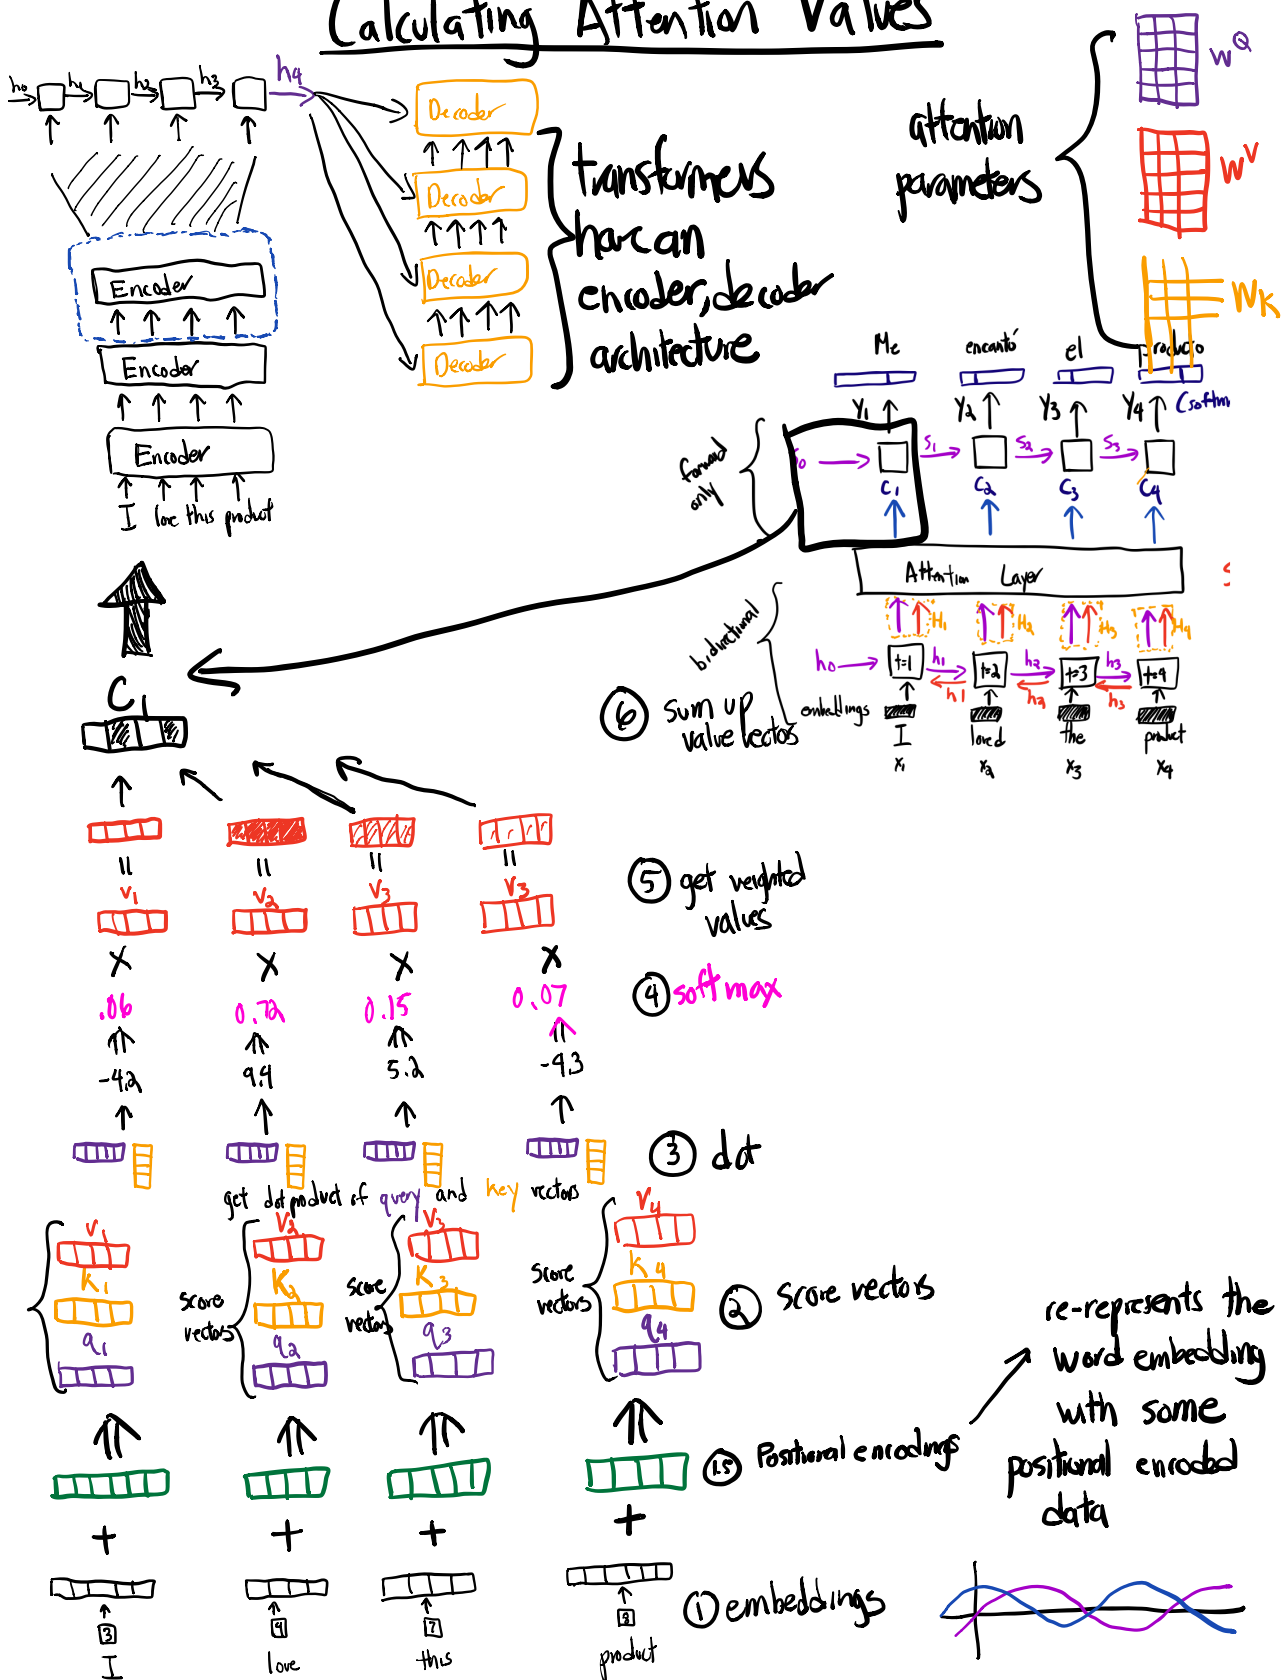 Calculating Attention Values
h₀ h₁ h₂ h₃ h₄
Decoder
Decoder
Decoder
Decoder
transformers
have an
encoder, decoder
architecture
attention
parameters
W^Q
W^V
W_K
Encoder
Encoder
Encoder
I love this product
Me encantó el producto
Y₁ Y₂ Y₃ Y₄ (softm
forward
only
S₀ S₁ S₂ S₃
C₁ C₂ C₃ C₄
Attention Layer
S
bidirectional
H₁ H₂ H₃ H₄
h₀ t=1 h₁ t=2 h₂ t=3 h₃ t=4
h₁ h₂ h₃
embeddings
I loved the product
x₁ x₂ x₃ x₄
C₁
⑥ sum up
value vectors
V₁ V₂ V₃ V₃
⑤ get weighted
values
x x x x
.06 0.72 0.15 0.07
④ softmax
-4.2 9.4 5.2 -4.3
③ dot
get dot product of query and key vectors
V₁ V₂ V₃ V₄
K₁ K₂ K₃ K₄
q₁ q₂ q₃ q₄
score
vectors
score
vectors
score
vectors
② score vectors
1.5 Positional encodings
re-represents the
word embedding
with some
positional encoded
data
+ + + +
① embeddings
3 9 7 8
I love this product